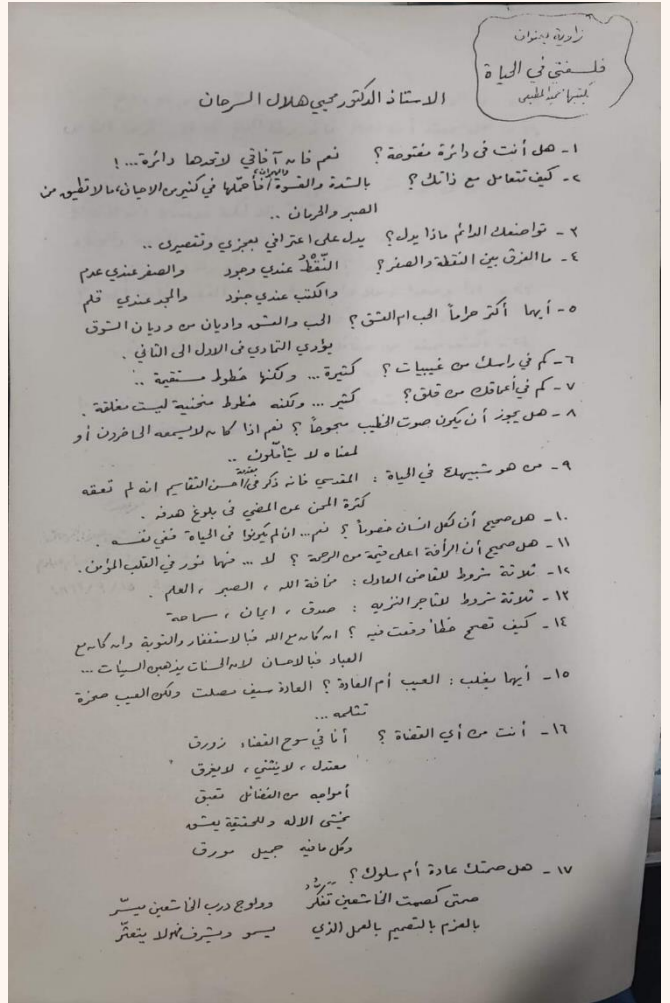 زاوية بعنوان
فلسفتي في الحياة
يكتبها حميد المطبعي
الاستاذ الدكتور محيي هلال السرحان
١- هل أنت في دائرة مفتوحة ؟ نعم فانه آفاقي لا تحدها دائرة ...!
٢- كيف تتعامل مع ذاتك ؟ بالشدة والقسوة فأحملها في كثير من الاحيان ما لا تطيق من
الصبر والحرمان ..
٣- تواضعك الدائم ماذا يدل ؟ يدل على اعترافي بعجزي وتقصيري ..
٤- ما الفرق بين النقطة والصفر ؟ النقط عندي وجود والصفر عندي عدم
والكتب عندي جنود والمجد عندي قلم
٥- أيهما أكثر هراماً الحب ام العشق ؟ الحب والعشق واديان من وديان الشوق
يؤدي التمادي في الاول الى الثاني .
٦- كم في راسك من غيبيات ؟ كثيرة ... ولكنها خطوط مستقيمة ..
٧- كم في أعماقك من قلق ؟ كثير ... ولكنه خطوط منحنية ليست مغلقة .
٨- هل يجوز أن يكون صوت الخطيب مبحوحاً ؟ نعم اذا كان لا يسمعه الحاضرون أو
لمعناه لا يتأملون ..
٩- من هو شبيهك في الحياة : المقدسي فانه ذكر في مقدمة أحسن التقاسيم انه لم تعقه
كثرة المحن عن المضي في بلوغ هدفه .
١٠- هل صحيح أن لكل انسان خصوماً ؟ نعم ... ان لم يكونوا في الحياة ففي نفسه .
١١- هل صحيح أن الرأفة اعلى قيمة من الرحمة ؟ لا ... فهما نور في القلب المؤمن .
١٢- ثلاثة شروط للقاضي العادل : مخافة الله ، الصبر ، العلم .
١٣- ثلاثة شروط للتاجر النزيه : صدق ، ايمان ، سماحة
١٤- كيف تصحح خطأ وقعت فيه ؟ ان كان مع الله فبالاستغفار والتوبة وان كان مع
العباد فبالاحسان لان الحسنات يذهبن السيئات ...
١٥- أيهما يغلب : العيب أم العادة ؟ العادة سيف مصلت ولكن العيب صخرة
تثلمه ...
١٦- أنت من أي القضاة ؟ أنا في سوح القضاء زورق
معتدل ، لا ينثني ، لا يغرق
أمواجه من الفضائل تعبق
يخشى الاله وللحقيقة يعشق
وكل مافيه جميل مورق
١٧- هل صمتك عادة أم سلوك ؟
صمتي كصمت الخاشعين تفكر وولوج درب الخاشعين ميسر
بالعزم بالتصميم بالعمل الذي يسمو ويشرف فهو لا يتعثر